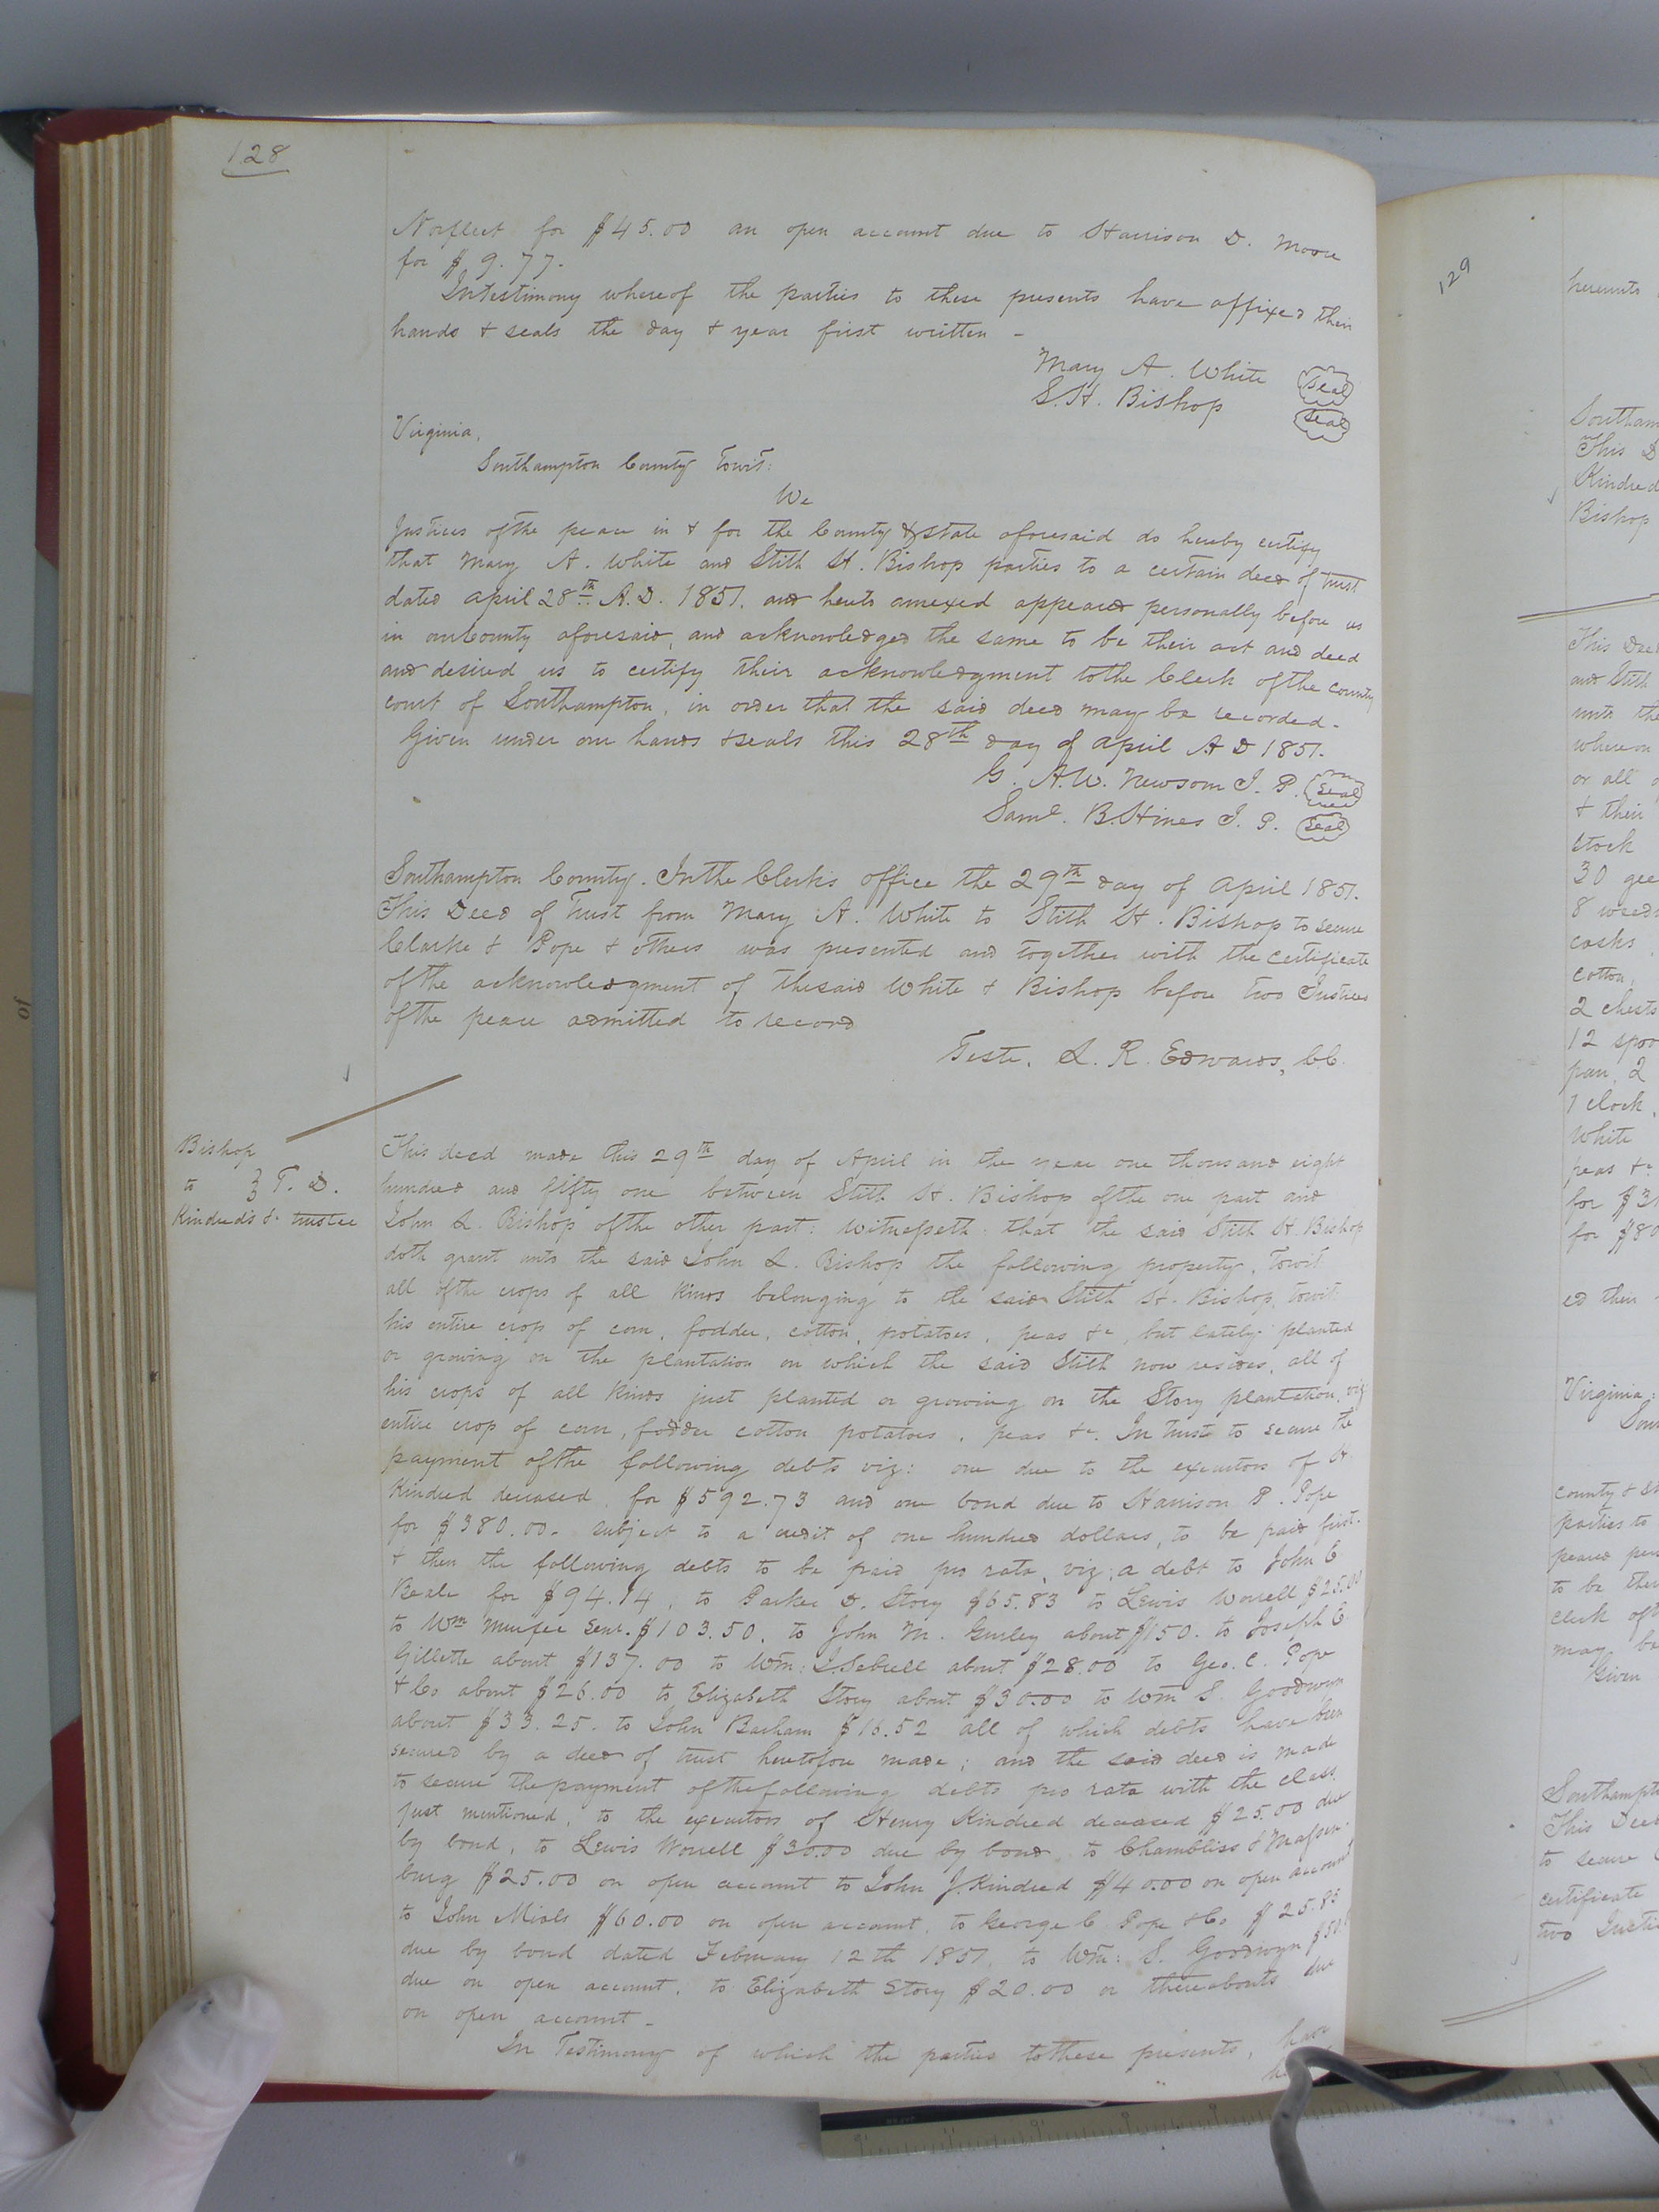 128
Norflect for $45.00 an open account due to Harrison D. Moore
for $9.77.
Intestimony whereof the parties to these presents have affixed their
hands & seals the day & year first written -
Mary A. White seal
S. H. Bishop seal
Virginia,
Southampton County Towit:
We
Justices of the peace in & for the County & State aforesaid do hereby certify
that Mary A. White and Stith H. Bishop parties to a certain deed of trust
dated april 28th A.D. 1851. and hereto annexed appeared personally before us
in our County aforesaid, and acknowledged the same to be their act and deed
and desired us to certify their acknowledgment to the Clerk of the County
court of Southampton, in order that the said deed may be recorded.
Given under our hands & seals this 28th day of april A D 1851.
G. A. W. Newsom J. P. seal
Saml. B. Hines J. P. seal
Southampton County. In the Clerks office the 29th day of April 1851.
This Deed of Trust from Mary A. White to Stith H. Bishop to secure
Clarke & Pope & others was presented and together with the certificate
of the acknowledgment of the said White & Bishop before two Justices
of the peace admitted to record
Teste. L. R. Edwards, CC.
Bishop
to } T. D.
Kindred's &c trustee
This deed made this 29th day of April in the year one thousand eight
hundred and fifty one between Stith H. Bishop of the one part and
John L. Bishop of the other part: Witnesseth that the said Stith H Bishop
doth grant unto the said John L. Bishop the following property, Towit
all of the crops of all kinds belonging to the said Stith H. Bishop, towit
his entire crop of corn, fodder, cotton, potatoes, peas &c, but lately planted
or growing on the plantation on which the said Stith now resides, all of
his crops of all kinds just planted or growing on the Story plantation, viz:
entire crop of corn, fodder cotton potatoes, peas &c. In trust to secure the
payment of the following debts viz: one due to the executors of H.
Kindred deceased, for $592.73 and one bond due to Harrison P. Pope
for $380.00. subject to a credit of one hundred dollars, to be paid first.
& then the following debts to be paid pro rata, viz; a debt to John C
Beale for $94.14, to Parker D. Story $65.83 to Lewis Worrell $25.00
to Wm Murfee Senr. $103.50, to John M. Gurley about $150. to Joseph E
Gillette about $137.00 to Wm: J Sebrell about $28.00 to Geo. C. Pope
& Co about $26.00 to Elizabeth Story about $30.00 to Wm S. Goodwyn
about $33.25. to John Barham $16.52 all of which debts have been
secured by a deed of trust heretofore made; and the said deed is made
to secure the payment of the following debts pro rata with the class
just mentioned, to the executors of Henry Kindred deceased $25.00 due
by bond, to Lewis Worrell $30.00 due by bond, to Chambliss & Massen-
burg $25.00 on open account to John J. Kindred $40.00 on open account
to John Mials $60.00 on open account, to George C. Pope & Co $25.85
due by bond dated February 12th 1851, to Wm: S. Goodwyn
due on open account, to Elizabeth Story $20.00 or thereabouts due
on open account -
In Testimony of which the parties to these presents, have
129
hereunto
Southam
This D
Kindred
Bishop
This Deed
and Stith
unto the
whereon
or all
& their
stock
30 gee
8 weed
casks
cotton,
2 chests
12 spoo
pan, 2
1 clock,
White
peas &c
for $3
for $80
ed their
Virginia:
Sou
county & St
parties to
peared per
to be their
clerk of th
may be
Given
Southampto
This Deed
to secure
certificate
two Justi